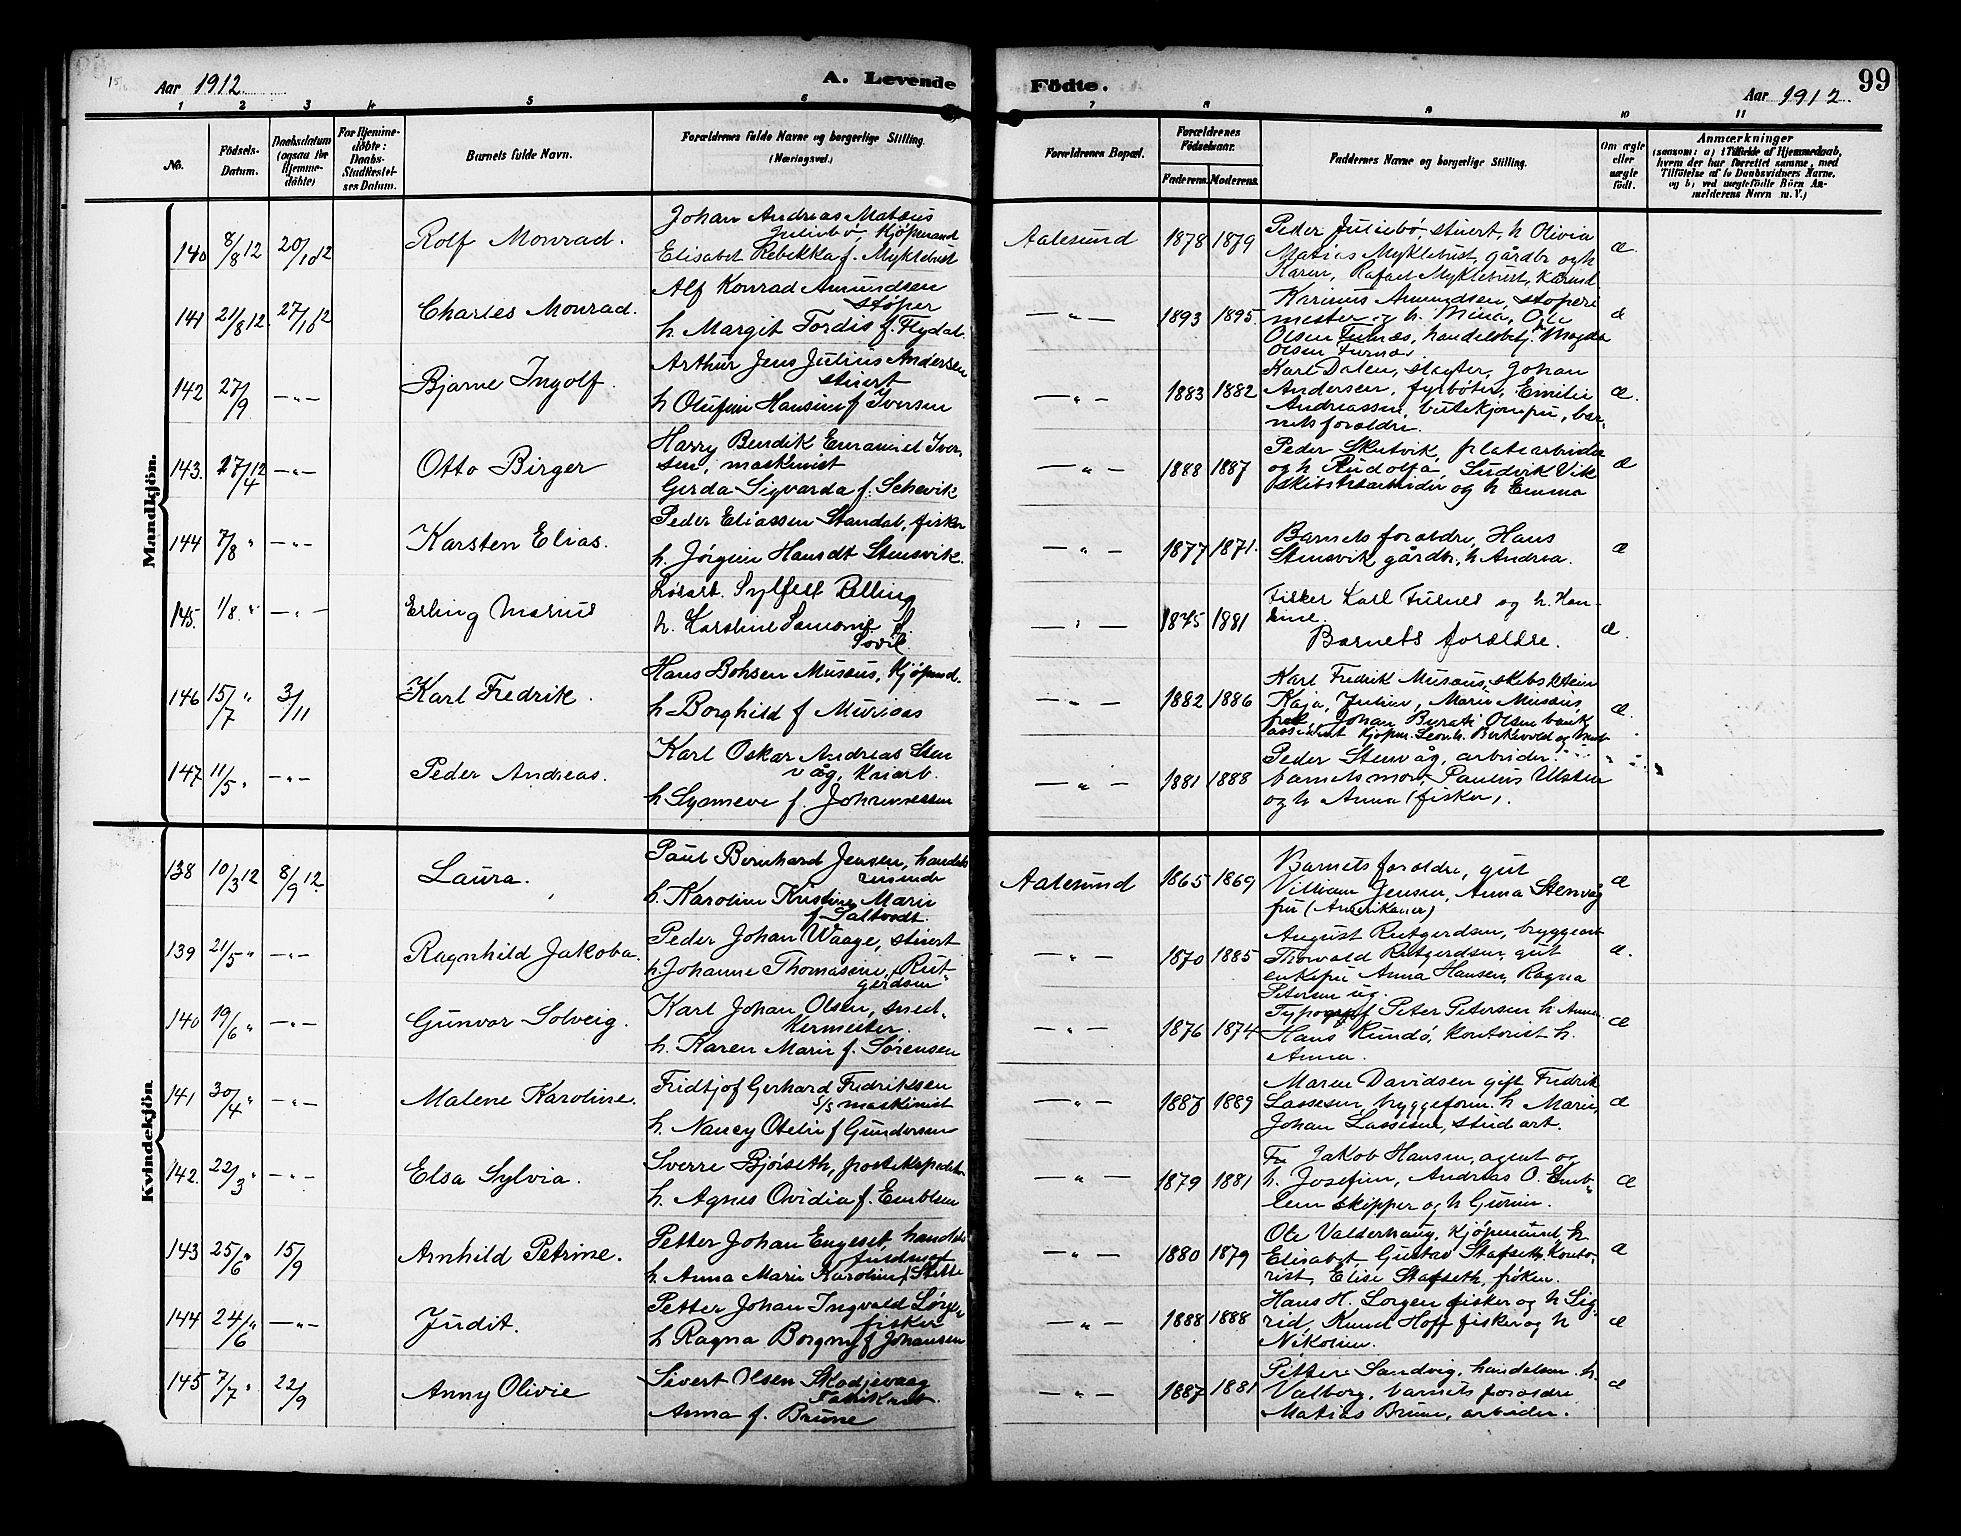 Aar 1912.
A. Levende
Födte.
Aar 1912.
99
1 2 3 4 5 6 7 8 9 10 11
No.
Födsels-Datum.
Daabsdatum (ogsaa for Hjemme-döbte)
For Hjemme-döbte: Daabs-Stadfæstel-ses Datum.
Barnets fulde Navn.
Forældrenes fulde Navne og borgerlige Stilling. (Næringsvei.)
Forældrenes Bopæl.
Forældrenes Födselsaar.
Faderens. Moderens.
Faddernes Navne og borgerlige Stilling.
Om ægte eller uægte födt.
Anmærkninger
(saasom: a) i Tilfælde af Hjemmedaab, hvem der har forrettet samme, med Tilföielse af to Daabsvidners Navne, og b) ved uægtefödte Börn An-melderens Navn m. V.)
Mandkjön.
140 8/8 12 20/10 12 Rolf Monrad.
Johan Andreas Matæus
Juliebø, Kjøpmand
Elisabet Rebekka f. Myklebust
Aalesund 1878 1879
Peder Juliebø, stuert, h Olivia
Matias Myklebust, gårdbr og h
Karen, Rafael Myklebust,
æ
141 21/8 12. 27/10 12 Charles Monrad.
Alf Konrad Amundsen
støper
h. Margit Tordis f. Flydal.
— " — 1893 1895.
Karinus Amundsen, støperi
mester og h. Mina, Ole
Olsen Furnæs, handelsbetj. Magda
Olsen Furnæs
æ
142 27/9. — " — Bjarne Ingolf.
Arthur Jens Julius Andersen
stuert
h Olufine Hansine f Iversen
— " — 1883 1882
Karl Dalen, slagter, Johan
Andersen, fyrbøter, Emilie
Andreassen, bar-
nets forældre.
æ.
143. 27/4 12 — " — Otto Birger
Harry Bendik Emanuel Iver-
sen, maskinist
Gerda Sigvarda f. Schevik
— " — 1888 1887
Peder Skutvik, platearbeider
og h Rudolfa, Ludvik Vik
og h Emma
æ
144 7/8 " — " — Karsten Elias.
Peder Eliassen Standal, fisker
h. Jørgine Hansdt Stensvik.
— " — 1877 1871.
Barnets forældre, Hans
Stensvik gårdbr. h Andrea.
æ
145. 1/8. " — " — Erling Marius
Løsarb. Sylfest Relling
h. Karoline Samone f.
Sovik.
— " — 1875 1881
Fisker Karl Furnes og h. Han-
sine.
Barnets forældre.
æ.
146 15/7 " 3/11 Karl Fredrik.
Hans Bohsen Musæus, Kjøpmd.
h Borghild f Musæus
— " — 1882 1886
Karl Fredrik Musæus,
Kaja, Juliev, Marie Musæus,
Johan Olsen bank
assistent Kjøpm. Leonh. Birkevold og
æ.
147 11/5 " — " — Peder Andreas.
Karl Oskar Andreas Sten
våg,
h Synneve f. Johannessen
— " — 1881 1888
Peder Stenvåg, arbeider.
barnets mor, Paulus Ulstein
og h Anna (fisker).
Kvindekjön.
138 10/3 12 8/9 12. Laura.
Paul Bernhard Jensen, handels
reisende
h. Karoline Kristine Marie
f. Saltvedt.
Aalesund 1865 1869
Barnets forældre, gut
Villiam Jensen, Anna Stenvåg
pii (Amerikaner)
æ
139 21/5 " — " — Ragnhild Jakoba.
Peder Johan Waage, stuert
h Johanne Thomasine, Rut-
gerdsen
— " — 1870 1885
August Rutgerdsen, bryggearb
Thorvald Rutgerdsen, gut
enkepii Anna Hansen, Ragna
Petersen ug.
æ.
140 19/6 " — " — Gunvor Solveig.
Karl Johan Olsen, sned-
kermester.
h. Karen Marie f. Sørensen
— " — 1876 1874
Typograf Peter Petersen h Anna
Hans Rundö, kontorist h.
Anna.
æ
141 30/4 " — " — Malene Karoline.
Fridtjof Gerhard Fredriksen
s/s maskinist
h. Nancy Otelie f Gundersen
— " — 1887 1889
Maren Davidsen gift Fredrik
Lassesen, bryggeform. h Marie,
Johan Lassesen, stud art.
æ
142. 22/3 " — " — Elsa Sylvia.
Sverre Bjørseth, postekspeditør
h. Agnes Ovidia f. Emblem
— " — 1879 1881
Jakob Hansen, agent og
h. Josefine, Andreas O. Emb-
lem skipper og h Gurine.
æ
143 25/6 " 15/9 Arnhild Petrine.
Petter Johan Engeset, handels
fuldmæg
h. Anna Marie Karoline f. Slette
— " — 1880 1879
Ole Valderhaug, Kjøpmand, h
Elisabet, Gustav Stafseth, konto-
rist, Elise Stafseth, frøken.
æ
144 24/6 " — " — Judit.
Petter Johan Ingvald Lorgen
fisker
h Ragna Borgny f Johansen
— " — 1888 1888
Hans H. Lorgen fisker og h Sig-
rid, Knud Hoff fisker og h
Nikoline.
æ
145 7/7 " 22/9 Anny Olivie
Sivert Olsen Skodjevaag
Fabrikarb.
Anna f. Brune
— " — 1887 1881
Petter Sandvig, handelsm. h.
Valborg, barnets forældre
Matias Brune, arbeider.
æ